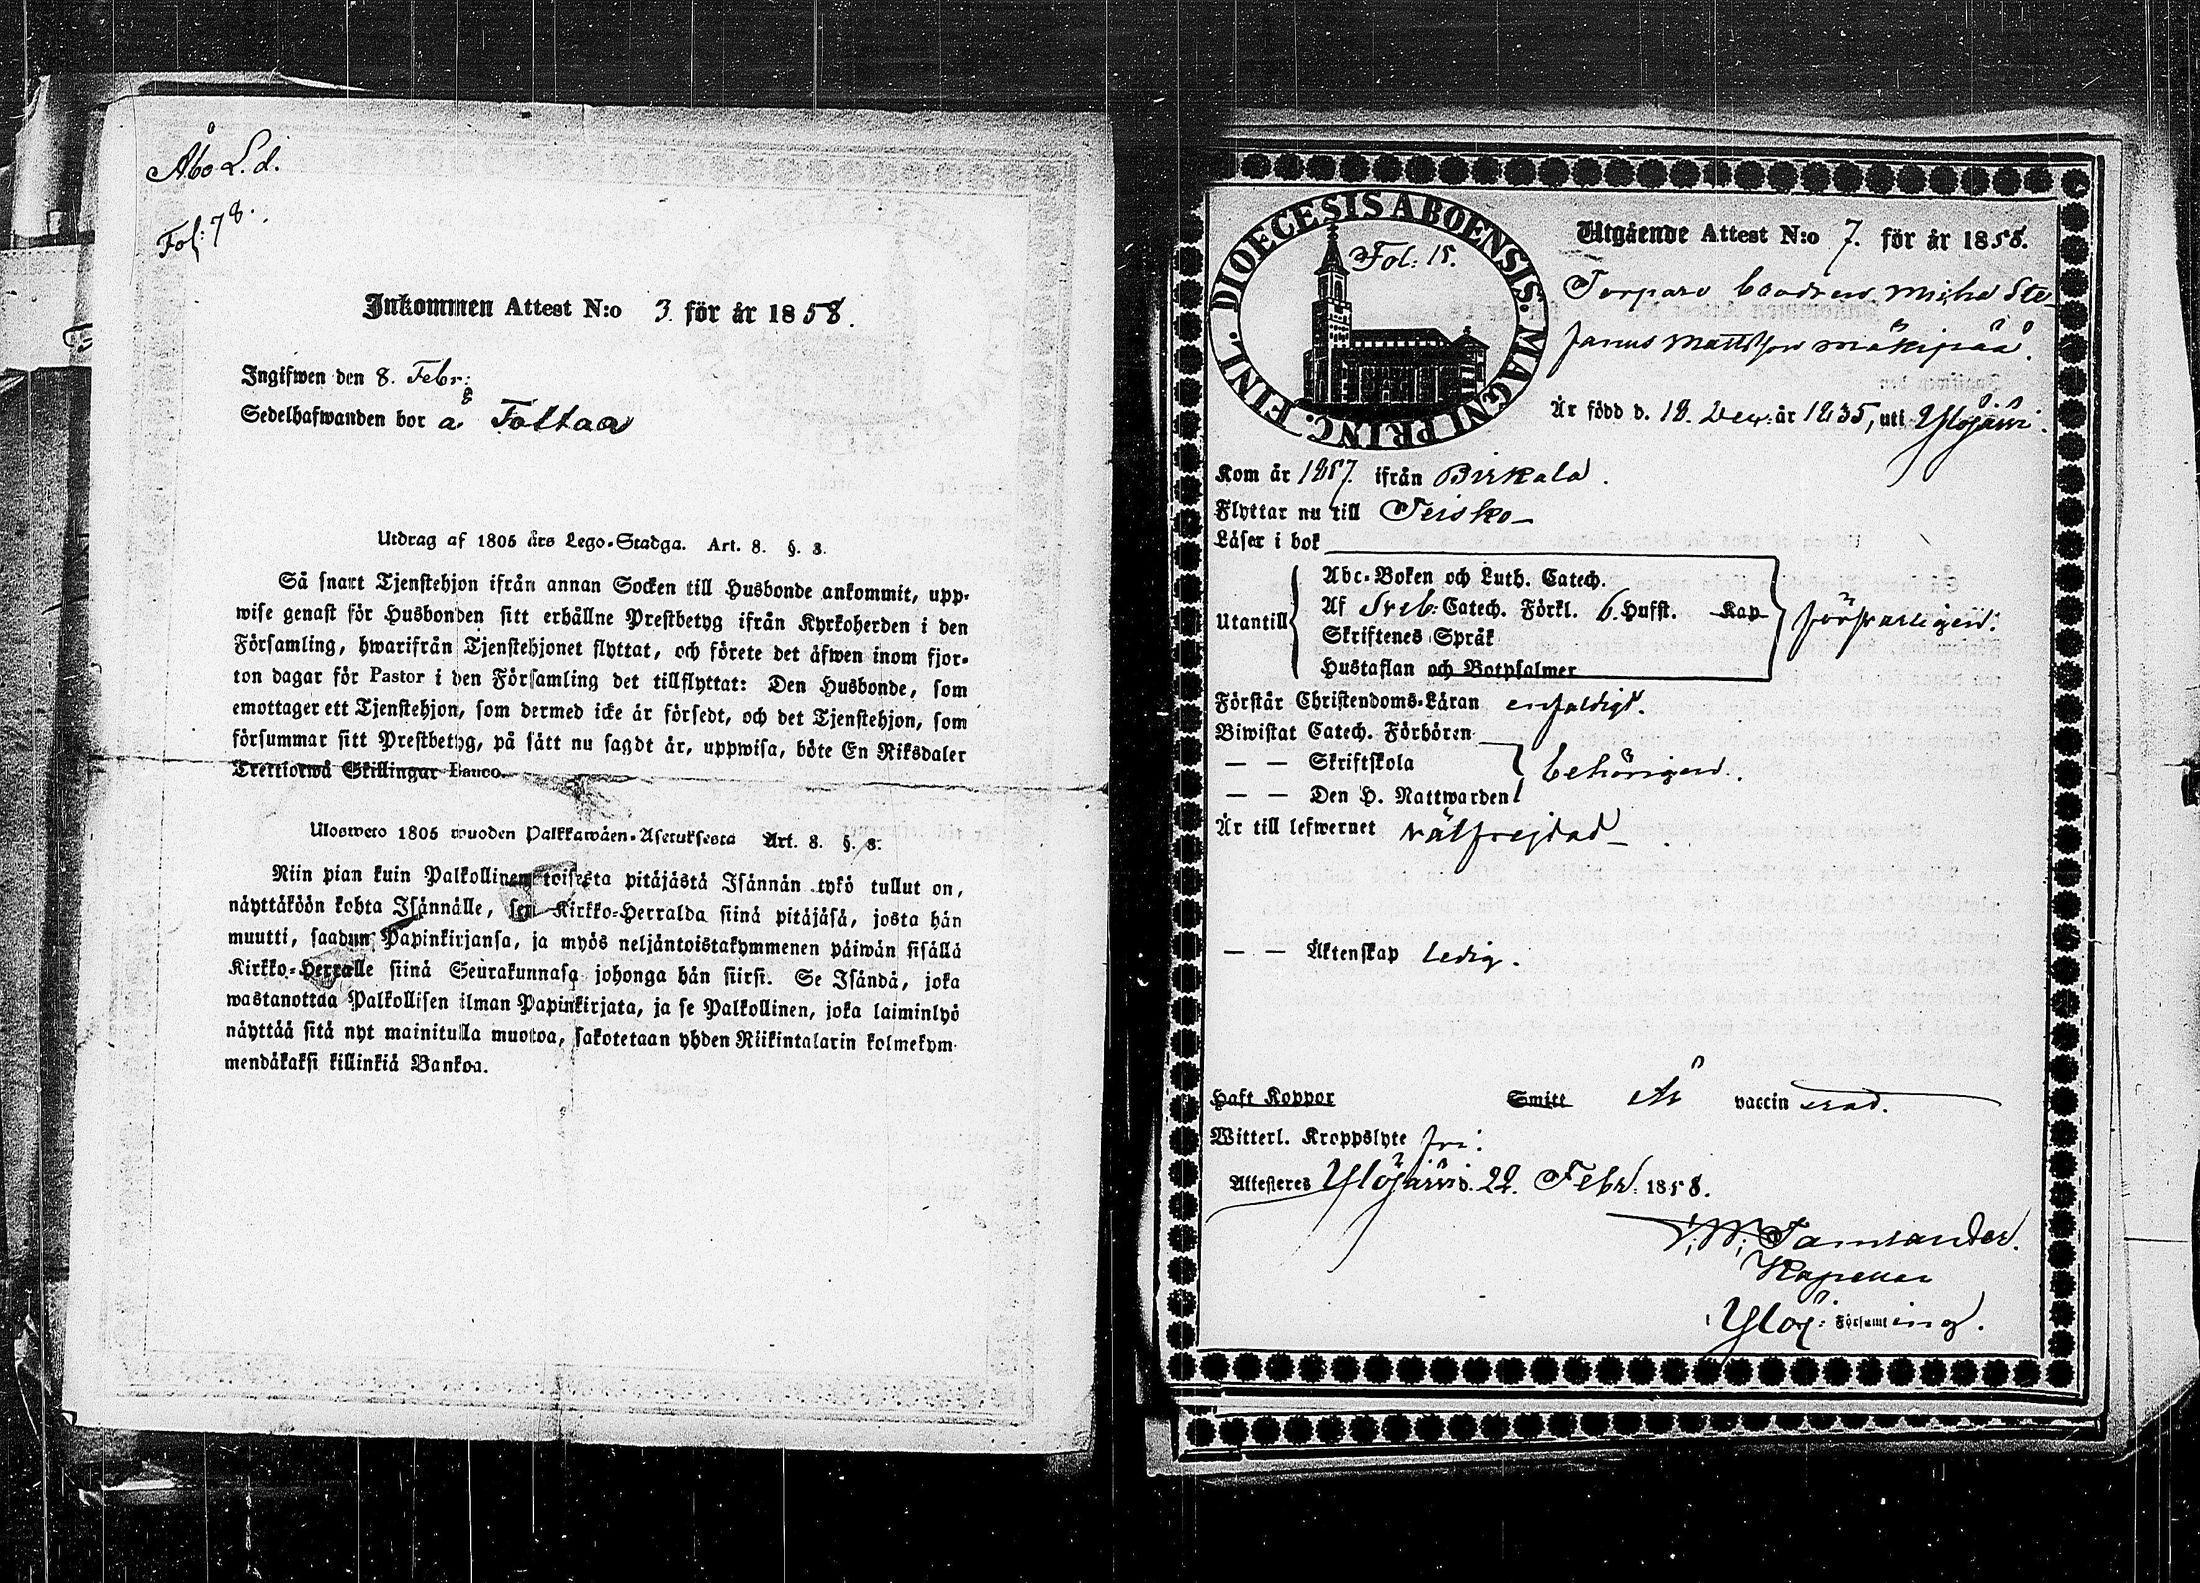 Åbo L. d.
Fol: 78.
Inkommen Attest N:o 3. för år 1858.
Ingifwen den 8. Febr:
Sedelhafwanden bor å
Utdrag af 1805 års Lego-Stadga. Art. 8. §. 8.
Så snart Tjenstehjon ifrån annan Socken till Husbonde ankommit, upp-
wise genast för Husbonden sitt erhållne Prestbetyg ifrån Kyrkoherden i den
Församling, hwarifrån Tjenstehjonet flyttat, och förete det äfwen inom fjor-
ton dagar för Pastor i den Församling det tillflyttat: Den Husbonde, som
emottager ett Tjenstehjon, som dermed icke är försedt, och det Tjenstehjon, som
försummar sitt Prestbetyg, på sätt nu sagdt är, uppwisa, böte En Riksdaler
Trettiotwå Skillingar Banco.
Ulosweto 1805 wuoden Palkkawäen-Asetuksesta Art. 8. §. 8.
Niin pian kuin Palkollinen toisesta pitäjästä Isännän tykö tullut on,
näyttäköön kohta Isännälle, sen Kirkko-Herralda siinä pitäjäsä, josta hän
muutti, saadun Papinkirjansa, ja myös neljäntoistakymmenen päiwän sisällä
Kirkko-Herralle siinä Seurakunnasa johonga hän siirsi. Se Isändä, joka
wastanottaa Palkollisen ilman Papinkirjata, ja se Palkollinen, joka laiminlyö
näyttää sitä nyt mainitulla muotoa, sakotetaan yhden Riikintalarin kolmekym-
mendäkaksi killinkiä Bankoa.
DIOECESIS ABOENSIS. MAGNI PRINC. FINL.
Fol: 15.
Utgående Attest N:o 7. för år 1858.
Ste-
fanus Mattsson Mäkipää.
Är född d. 18. Dec: år 1835, uti Ylöjärvi.
Kom år 1857. ifrån Birkala.
Flyttar nu till Teisko
Läser i bok
Utantill
Abc-Boken och Luth. Catech.
Af Sveb: Catech. Förkl. 6. Hufst. Kap
Skriftenes Språk
Hustaflan och Botpsalmer
försvarligen.
Förstår Christendoms-Läran enfaldigt.
Biwistat Catech. Förhören
— — Skriftskola
— — Den H. Nattwarden
behörigen.
Är till lefwernet välfrejdad
— — Äktenskap ledig.
Haft Koppor Smitt Är vaccinerad.
Witterl. Kroppslyte fri.
Attesteras Ylöjärvi d. 22. Febr. 1858.
Kapellan
i Ylöj: Församling.